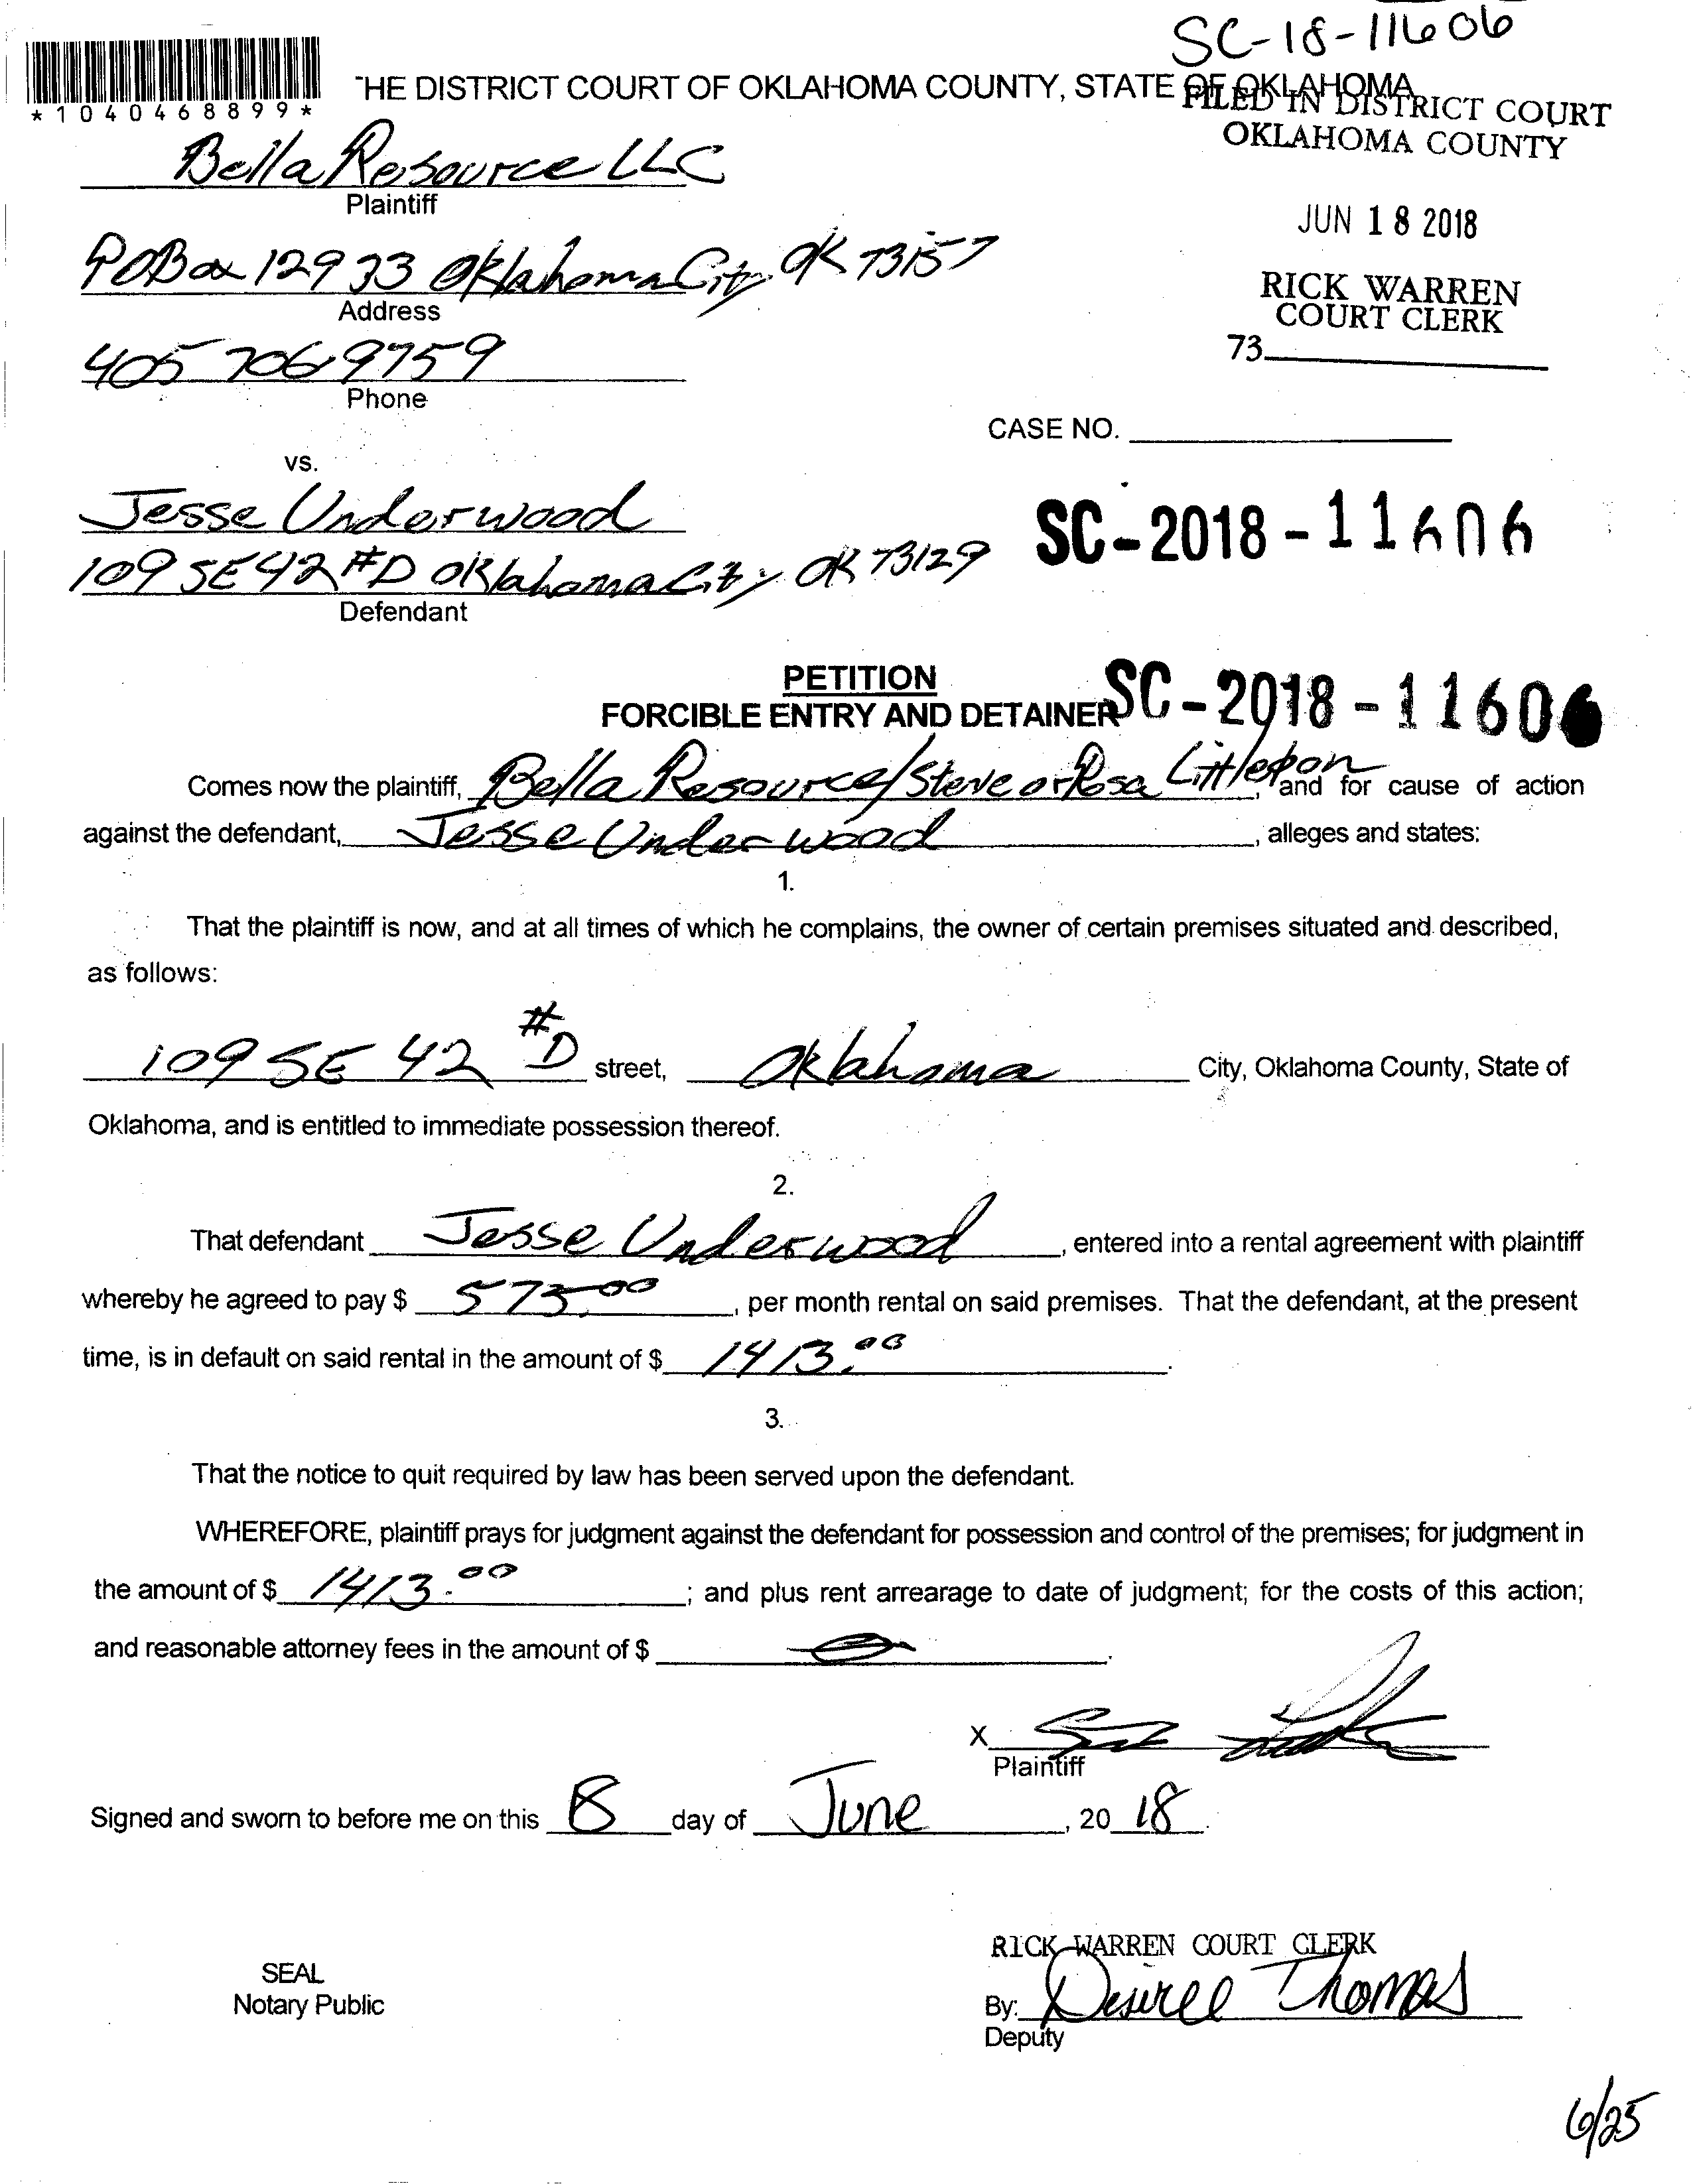 SC-18-11606
*1040468899*
THE DISTRICT COURT OF OKLAHOMA COUNTY, STATE OF OKLAHOMA
FILED IN DISTRICT COURT
OKLAHOMA COUNTY
Bella Resource LLC
Plaintiff
JUN 18 2018
PO Box 12933 Oklahoma City OK 73157
Address
RICK WARREN
COURT CLERK
73
405 706 9759
Phone
CASE NO.
vs.
Jesse Underwood
SC-2018-11606
109 SE 42 #D Oklahoma City OK 73129
Defendant
PETITION
FORCIBLE ENTRY AND DETAINER SC-2018-11606
Comes now the plaintiff, Bella Resource/Steve or Rosa Littlepon, and for cause of action
against the defendant, Jesse Underwood, alleges and states:
1.
That the plaintiff is now, and at all times of which he complains, the owner of certain premises situated and described,
as follows:
109 SE 42 #D street, Oklahoma City, Oklahoma County, State of
Oklahoma, and is entitled to immediate possession thereof.
2.
That defendant Jesse Underwood, entered into a rental agreement with plaintiff
whereby he agreed to pay $ 575.00, per month rental on said premises. That the defendant, at the present
time, is in default on said rental in the amount of $ 1413.00.
3.
That the notice to quit required by law has been served upon the defendant.
WHEREFORE, plaintiff prays for judgment against the defendant for possession and control of the premises; for judgment in
the amount of $ 1413.00; and plus rent arrearage to date of judgment; for the costs of this action;
and reasonable attorney fees in the amount of $ 0.
X
Plaintiff
Signed and sworn to before me on this 8 day of June, 20 18.
RICK WARREN COURT CLERK
SEAL
Notary Public
By: Desiree Thomas
Deputy
6/25